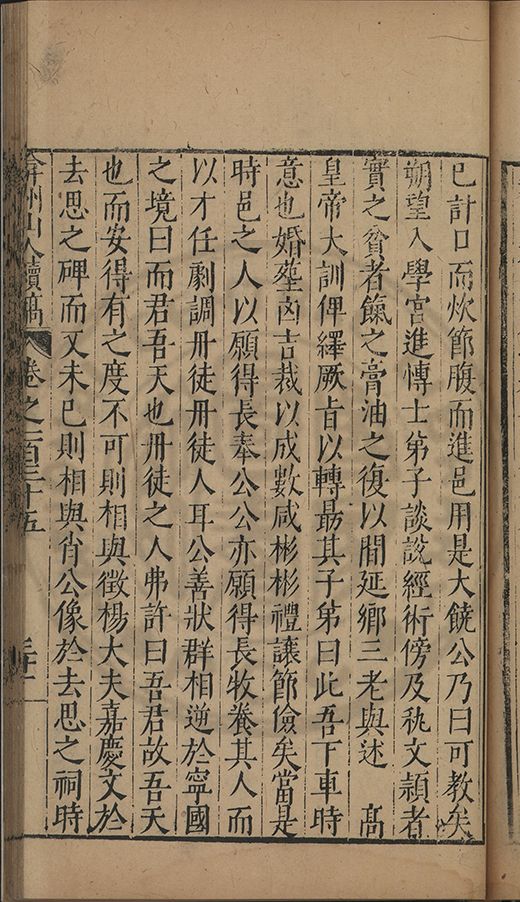 已計口而炊節腹而進邑用是大饒公乃曰可教矣
朔望入學宮進博士弟子談說經術傍及秇文頴者
實之貧者餼之膏油之復以間延鄉三老與述　高
皇帝大訓俾繹厥旨以轉勗其子弟曰此吾下車時
意也婚塟凶吉裁以成數咸彬彬禮讓節儉矣當是
時邑之人以願得長奉公公亦願得長牧養其人而
以才任劇調丹徒丹徒人耳公善狀群相逆於寧國
之境曰而君吾天也丹徒之人弗許曰吾君故吾天
也而安得有之度不可則相與徵楊大夫嘉慶文於
去思之碑而又未已則相與肖公像於去思之祠時
弇州山人續稿　卷之一百三十五